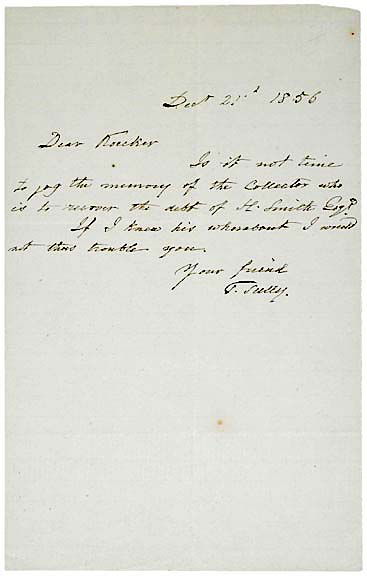 Decr 21st 1856
Dear Koecker
Is it not time
to jog the memory of the Collector who
is to recover the debt of H. Smith Esqr.
If I knew his whereabout I would
not thus trouble you.
Your friend
T. Sully.